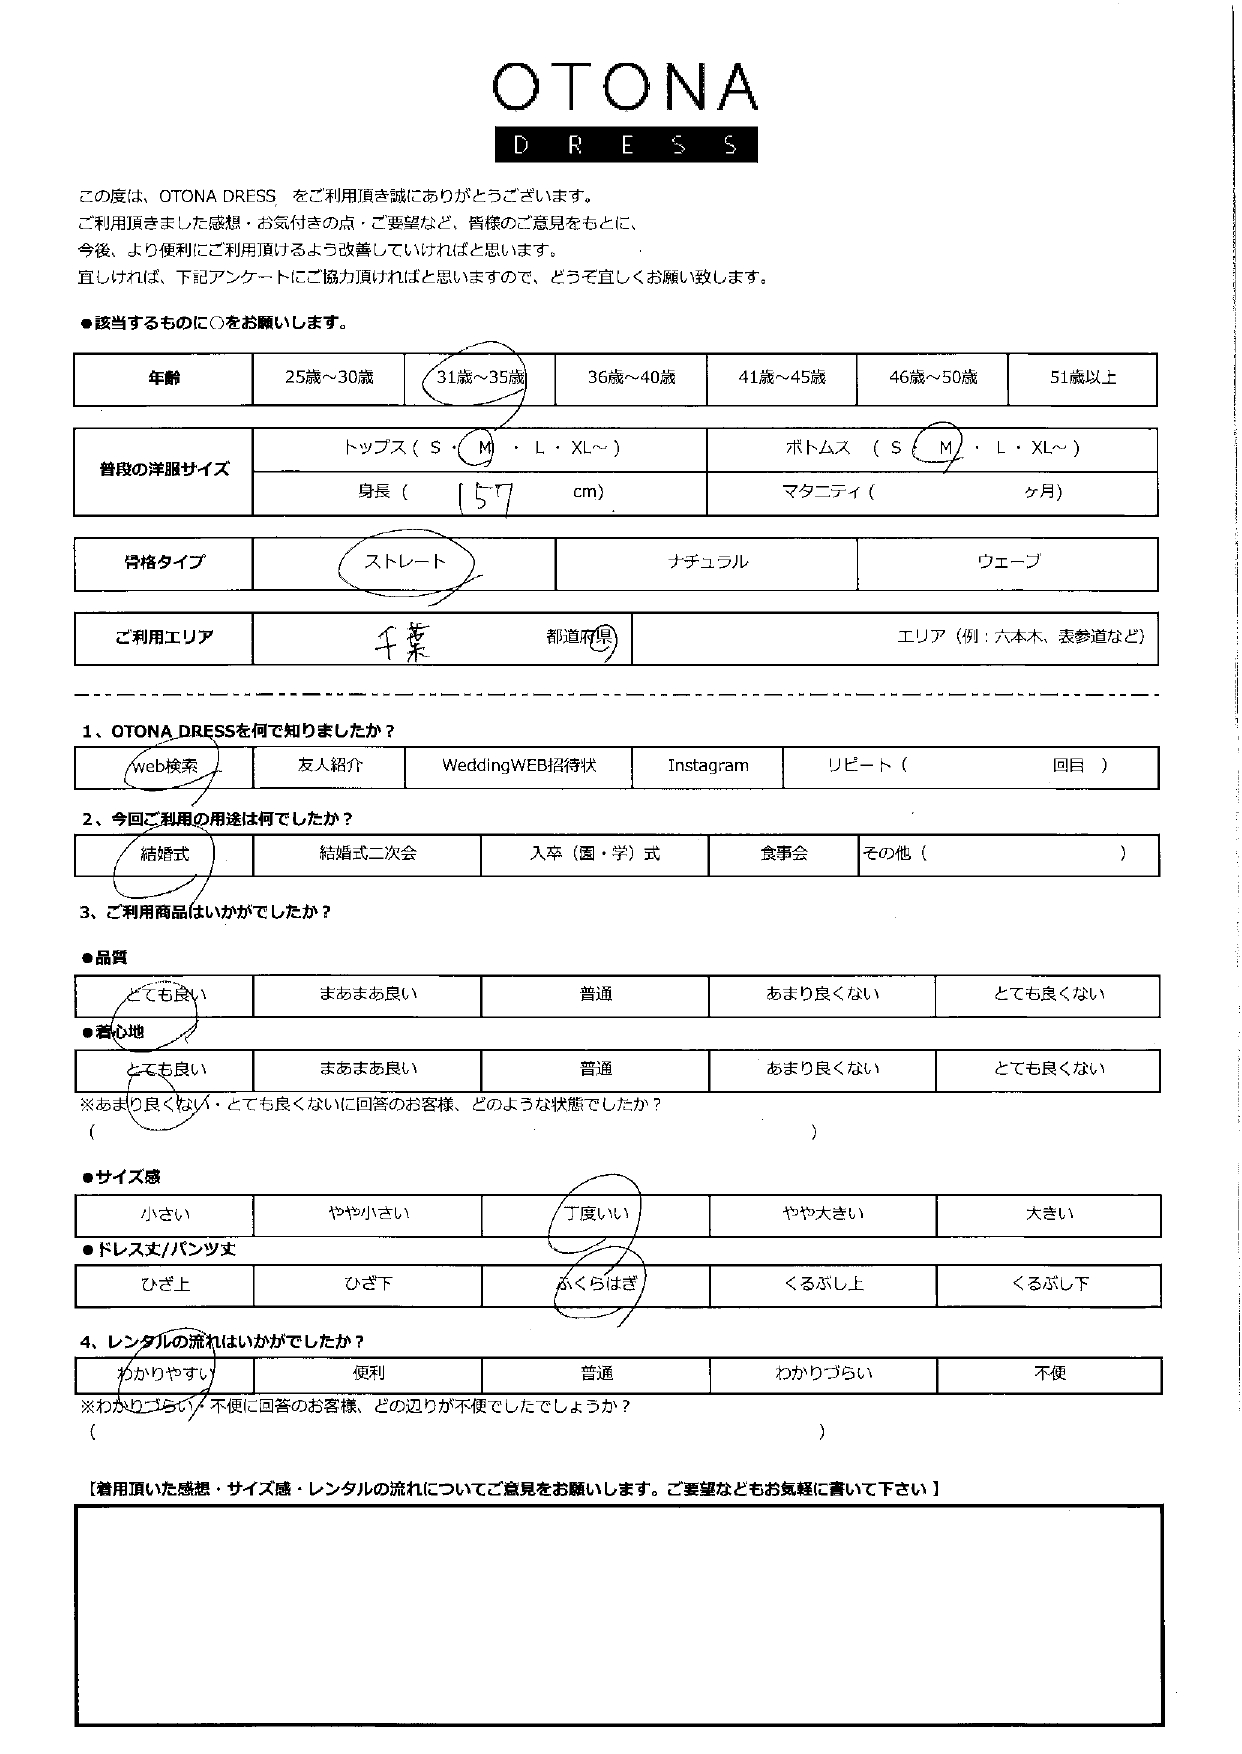 OTONA
DRESS
この度は、OTONA DRESS をご利用頂き誠にありがとうございます。
ご利用頂きました感想・お気付きの点・ご要望など、皆様のご意見をもとに、
今後、より便利にご利用頂けるよう改善していければと思います。
宜しければ、下記アンケートにご協力頂ければと思いますので、どうぞ宜しくお願い致します。
●該当するものに○をお願いします。
年齢 25歳～30歳 31歳～35歳 36歳～40歳 41歳～45歳 46歳～50歳 51歳以上
普段の洋服サイズ トップス ( S ・ M ・ L ・ XL～ ) ボトムス ( S ・ M ・ L ・ XL～ )
身長 ( 157 cm) マタニティ ( ヶ月)
骨格タイプ ストレート ナチュラル ウェーブ
ご利用エリア 千葉 都道府県 エリア (例：六本木、表参道など)
1、OTONA DRESSを何で知りましたか？
web検索 友人紹介 WeddingWEB招待状 Instagram リピート ( 回目 )
2、今回ご利用の用途は何でしたか？
結婚式 結婚式二次会 入卒（園・学）式 食事会 その他 ( )
3、ご利用商品はいかがでしたか？
●品質
とても良い まあまあ良い 普通 あまり良くない とても良くない
●着心地
とても良い まあまあ良い 普通 あまり良くない とても良くない
※あまり良くない・とても良くないに回答のお客様、どのような状態でしたか？
( )
●サイズ感
小さい やや小さい 丁度いい やや大きい 大きい
●ドレス丈/パンツ丈
ひざ上 ひざ下 ふくらはぎ くるぶし上 くるぶし下
4、レンタルの流れはいかがでしたか？
わかりやすい 便利 普通 わかりづらい 不便
※わかりづらい・不便に回答のお客様、どの辺りが不便でしたでしょうか？
( )
【着用頂いた感想・サイズ感・レンタルの流れについてご意見をお願いします。ご要望などもお気軽に書いて下さい 】